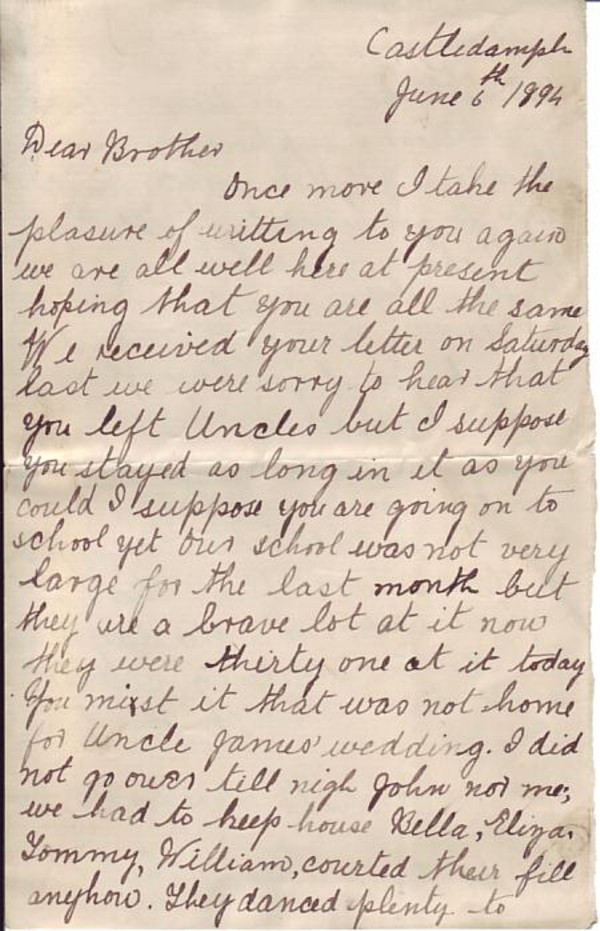 Castledamph
June 6th 1894
Dear Brother
Once more I take the
plasure of writting to you again
we are all well here at present
hoping that you are all the same
We received your letter on Saturday
last we were sorry to hear that
you left Uncles but I suppose
you stayed as long in it as you
could I suppose you are going on to
school yet Our school was not very
large for the last month but
they are a brave lot at it now
they were thirty one at it today
You misst it that was not home
for Uncle James' wedding. I did
not go over till nigh John nor me;
we had to keep house Bella, Eliza,
Tommy, William, courted their fill
anyhow. They danced plenty to